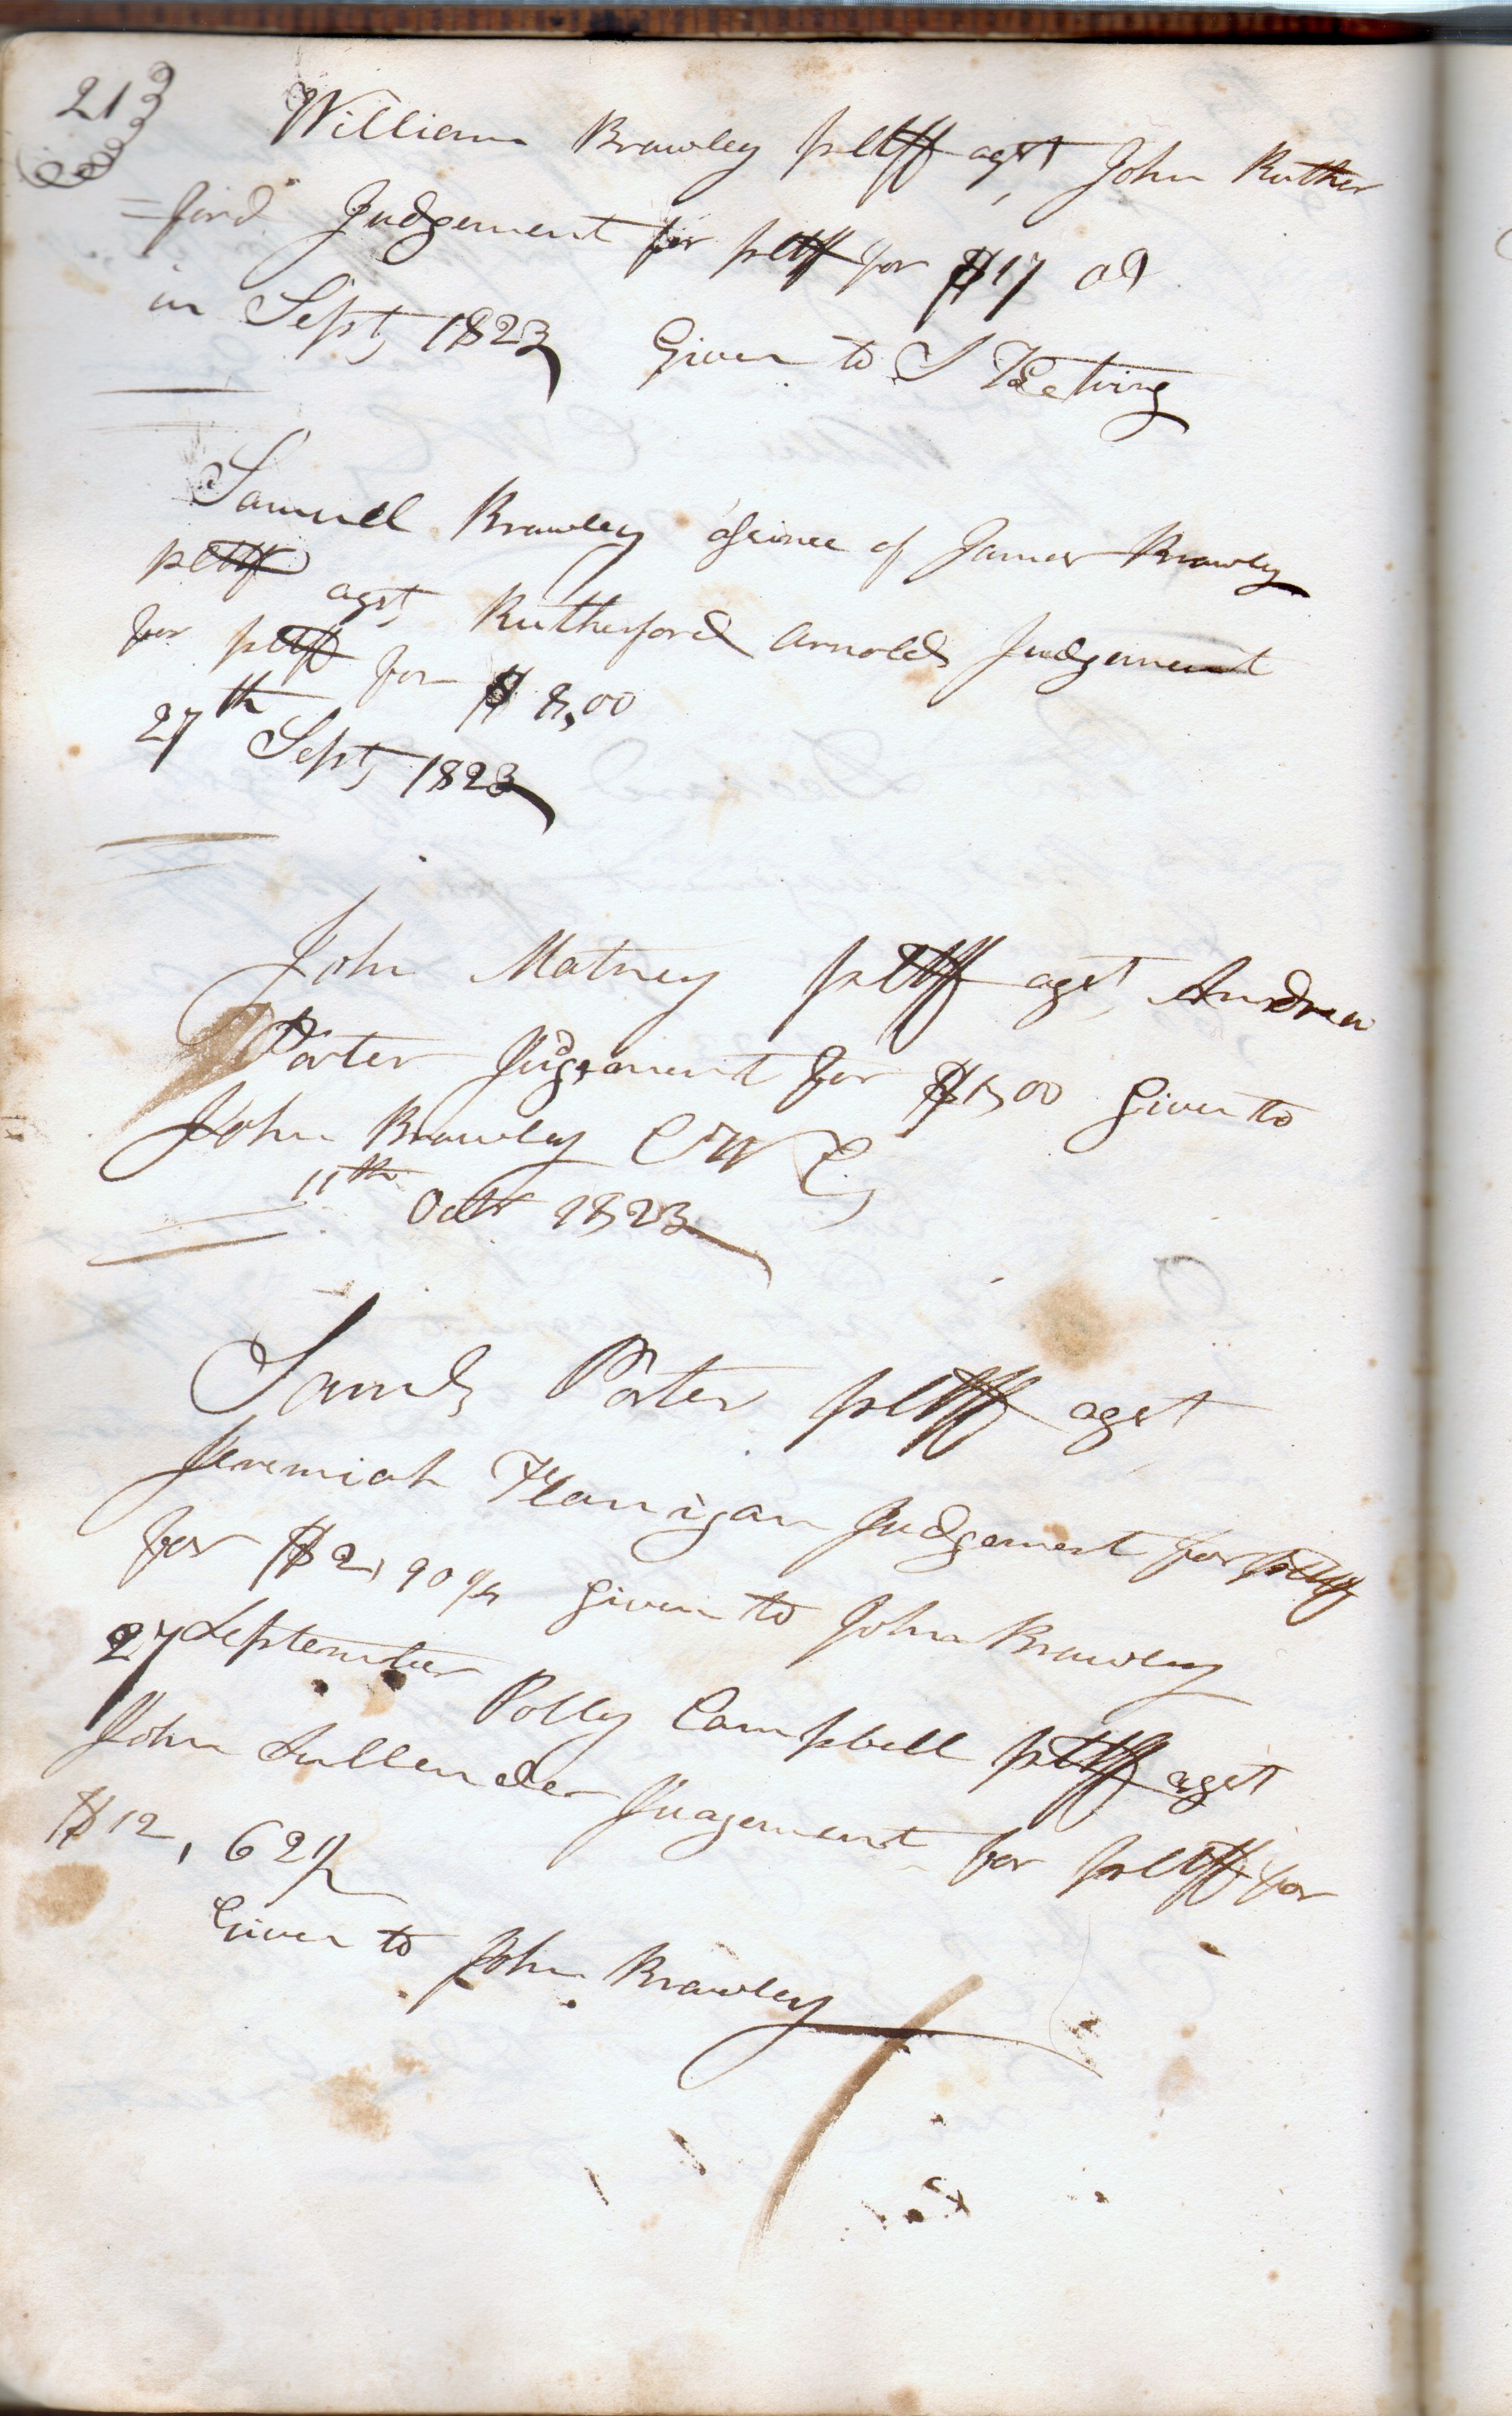 213
William Brawley pltff agst John Ruther
=ford Judgement for pltff for $17 00
in Sept 1823 Given to S
Samuell Brawley asinee of James Brawley
pltff agst Rutherford Arnold Judgement
for pltff for $ 8,00
27th Sept 1823
John Matney pltff agst Andrew
Porter Judgement for $1,00 Given to
John Brawley
11th Octr 1823
Saml Porter pltff agst
Jeremiah Flanigan Judgement for pltff
for $2,90 given to John Brawley
27 September Polly Campbell pltff agst
John Sullender Judgement for pltff for
$12, 62
Given to John Brawley